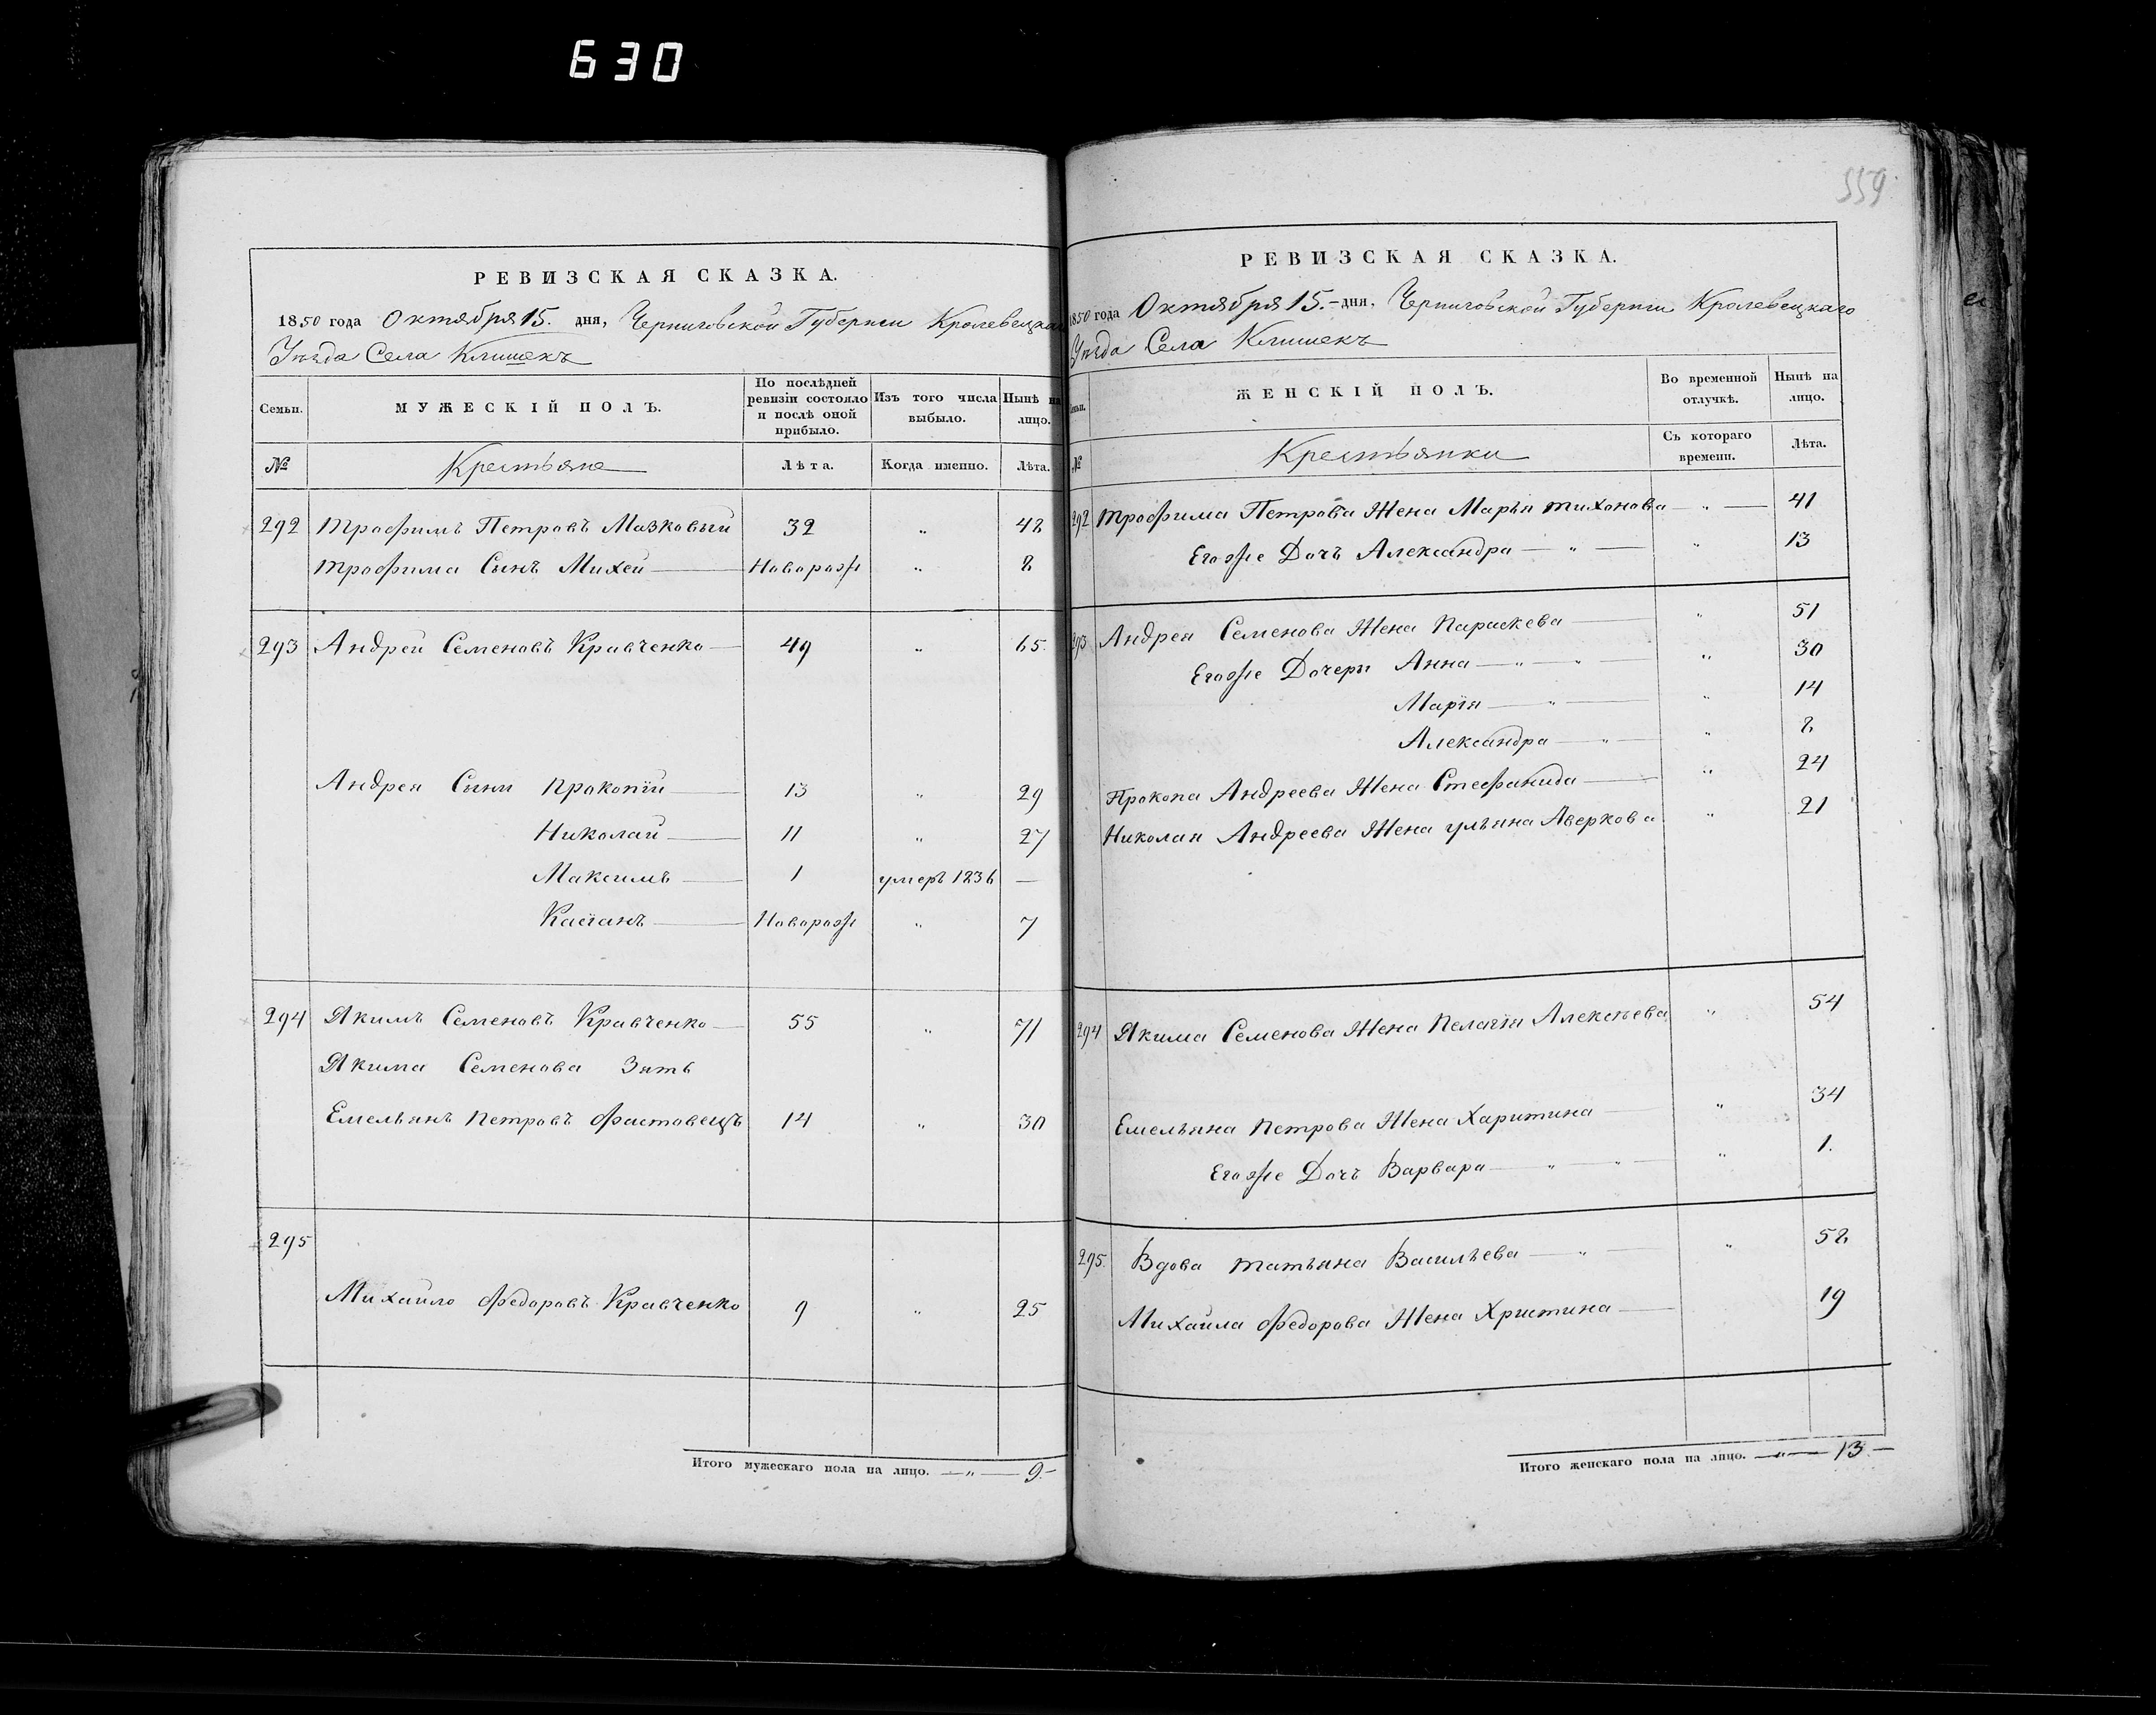 630
559
РЕВИЗСКАЯ СКАЗКА.
1850 года Октября 15. дня, Черниговской Губернии Кролевецкаго
Уѣзда Села Клишекъ
Семьи.
МУЖЕСКІЙ ПОЛЪ.
По послѣдней ревизіи состояло и послѣ оной прибыло.
Изъ того числа выбыло.
Нынѣ на лицо.
№ Крестьяне Лѣта. Когда именно. Лѣта.
292 Трофимъ Петровъ Мазковый 32 " 48
Трофима Сынъ Михей — Новорож " 8
293 Андрей Семеновъ Кравченко — 49 " 65.
Андрея Сыны Прокопій — 13 " 29
Николай — 11 " 27
Максимъ — 1 умеръ 1836 —
Касіанъ — Новорож " 7
294 Якимъ Семеновъ Кравченко — 55 " 71
Якима Семенова Зять
Емельянъ Петровъ Фастовецъ 14 " 30
295
Михайло Федоровъ Кравченко 9 " 25
Итого мужескаго пола на лицо. — " — 9. —
РЕВИЗСКАЯ СКАЗКА.
1850 года Октября 15. — дня, Черниговской Губернии Кролевецкаго
Уѣзда Села Клишекъ
Семьи.
ЖЕНСКІЙ ПОЛЪ.
Во временной отлучкѣ.
Нынѣ на лицо.
№ Крестьянки Съ котораго времени. Лѣта.
292 Трофима Петрова Жена Марья Тихонова — " — 41
Егоже Дочь Александра — " — " 13
293 Андрея Семенова Жена Параскева — " 51
Егоже Дочери Анна — " — " — " 30
Марія — " — " 14
Александра — " — " 8
Прокопа Андреева Жена Стефанида — " 24
Николая Андреева Жена Ульяна Аверкова " 21
294 Якима Семенова Жена Пелагія Алексѣева " 54
Емельяна Петрова Жена Харитина — " 34
Егоже Дочь Варвара — " — " — " 1.
295. Вдова Татьяна Васильева — " — " 58
Михайла Федорова Жена Христина — 19
Итого женскаго пола на лицо. — " — 13 —